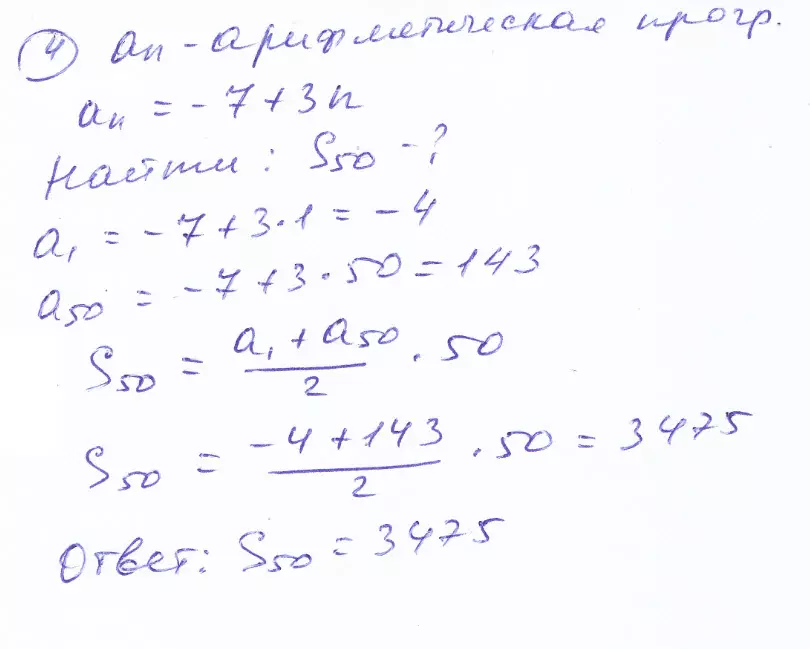 4 aₙ - арифметическая прогр.
aₙ = - 7 + 3n
Найти: S₅₀ - ?
a₁ = - 7 + 3·1 = - 4
a₅₀ = - 7 + 3·50 = 143
S₅₀ = (a₁ + a₅₀)/2 · 50
S₅₀ = (-4 + 143)/2 · 50 = 3475
Ответ: S₅₀ = 3475